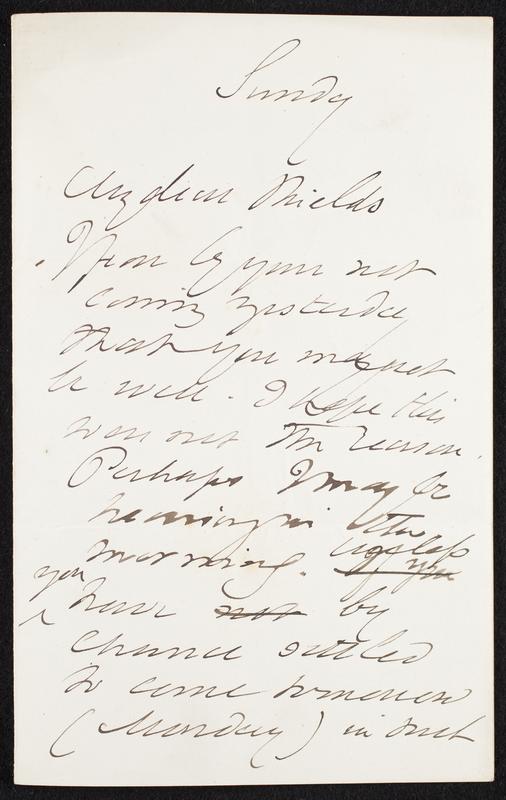 Sunday
My dear Shields
I fear by your not
coming yesterday
that you may not
be well. I hope this
was not the reason.
Perhaps I may be
hearing in the
morning. unless if you
you have not by
chance settled
to come tomorrow
(Monday) in that